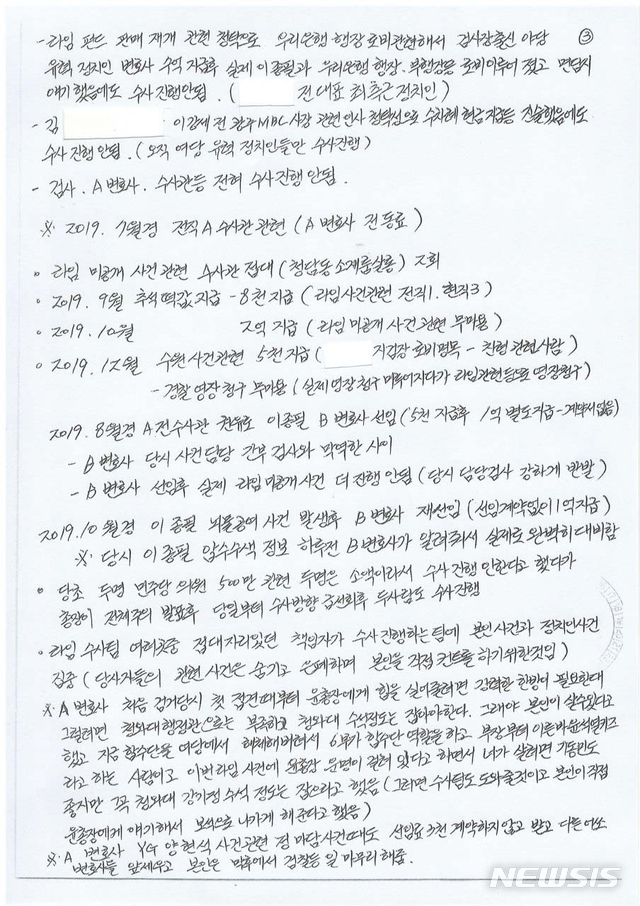 - 라임 펀드 판매 재개 관련 청탁으로 우리은행 행장 로비관련해서 검사장출신 야당 ③
유력 정치인 변호사 수억 지급후 실제 이종필과 우리은행 행장. 부행장등 로비이루어 졌고 면담시
얘기 했음에도 수사 진행안됨. ( 전 대표 최측근 정치인 )
- 김 이강세 전 광주MBC 사장 관련 인사 청탁성으로 수차례 현금지급등 진술했음에도
수사 진행 안됨. ( 오직 여당 유력 정치인들만 수사진행 )
- 검사. A 변호사. 수사관등 전혀 수사 진행 안됨.
※. 2019. 7월경 전직 A 수사관 관련 ( A 변호사 전 동료 )
◦ 라임 미공개 사건 관련 수사관 접대 ( 청담동 소재 룸살롱 ) 2회
◦ 2019. 9월 추석 떡값 지급 - 8천 지급 ( 라임사건관련 전직1. 현직3 )
◦ 2019. 10월 2억 지급 ( 라임 미공개 사건 관련 무마용 )
◦ 2019. 12월 수원 사건관련 5천 지급 ( 지검장 로비명목 - 친형 관련사람 )
- 경찰 영장 청구 무마용 ( 실제 영장 청구 미루어지다가 라임관련 등으로 영장청구 )
2019. 8월경 A 전수사관 권유로 이종필 B 변호사 선임 ( 5천 지급후 1억 별도지급 - 계약서없음 )
- B 변호사 당시 사건 담당 간부 검사와 막역한 사이
- B 변호사 선임후 실제 라임 미공개 사건 더 진행 안됨 ( 당시 담당검사 강하게 반발 )
2019. 10 월경 이 종필 뇌물공여 사건 발생후 B 변호사 재선임 ( 선임계약없이 1억 지급 )
※. 당시 이 종필 압수수색 정보 하루전 B 변호사가 알려줘서 실제로 완벽히 대비함
◦ 당초 두명 민주당 의원 500만 관련 두명은 소액이라서 수사 진행 안한다고 했다가
총장이 전체주의 발표후 당일부터 수사방향 급선회후 두사람도 수사진행
◦ 라임 수사팀 여러명중 접대자리 있던 책임자가 수사 진행하는 팀에 본인사건과 정치인사건
집중 ( 당사자들의 관련 사건은 숨기고 은폐하며 본인을 직접 컨트롤 하기위한것임 )
※. A 변호사 처음 검거당시 첫 접견 때부터 윤총장에게 힘을 실어줄려면 강력한 한방이 필요한데
그럴려면 청와대 행정관으로는 부족하고 청와대 수석정도는 잡아야한다. 그래야 본인이 살수있다고
했고 지금 합수단을 여당에서 해체해버려서 6부가 합수단 역할을 하고 부장부터 이른바 윤석열키즈
라고 하는 사람이고 이번 라임 사건에 윤총장 운명이 걸려 있다고 하면서 너가 살려면 기동민도
좋지만 꼭 청와대 강기정 수석 정도는 잡으라고 했음 ( 그러면 수사팀도 도와줄것이고 본인이 직접
윤총장에게 얘기해서 보석으로 나가게 해준다고 했음 )
※. A 변호사 YG 양현석 사건관련 정 마담사건때도 선임료 3천 계약하지 않고 받고 다른 여소
변호사들 앞세우고 본인은 막후에서 검찰등 일 마무리 해줌.
NEWSIS